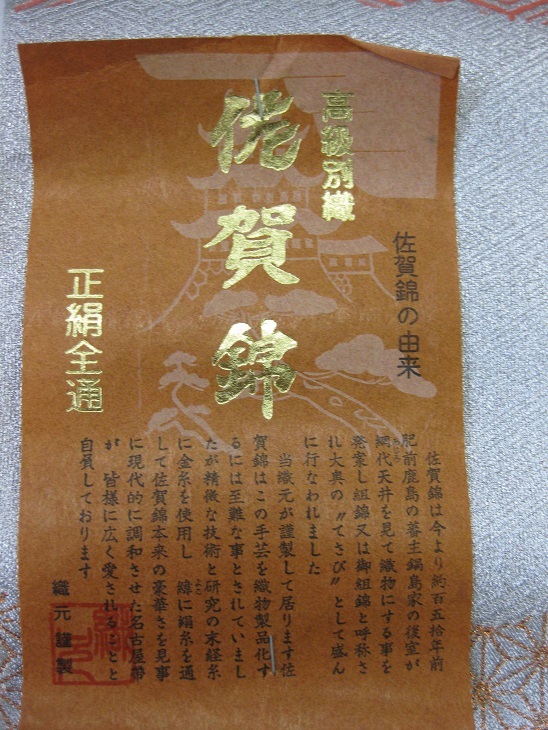 高級別織
佐賀錦
正絹全通
佐賀錦の由来
佐賀錦は今より約百五拾年前
肥前鹿島の蕃主鍋島家の後室が
網代天井を見て織物にする事を
発案し組錦又は御組錦と呼称さ
れ大奥の〝てさび〟として盛ん
に行なわれました
当織元が謹製して居ります佐
賀錦はこの手芸を織物製品化す
るには至難な事とされていまし
たが精微な技術と研究の末経糸
に金糸を使用し 緯に絹糸を通
して佐賀錦本来の豪華さを見事
に現代的に調和させた名古屋帯
が 皆様に広く愛されることと
自負しております
織元謹製